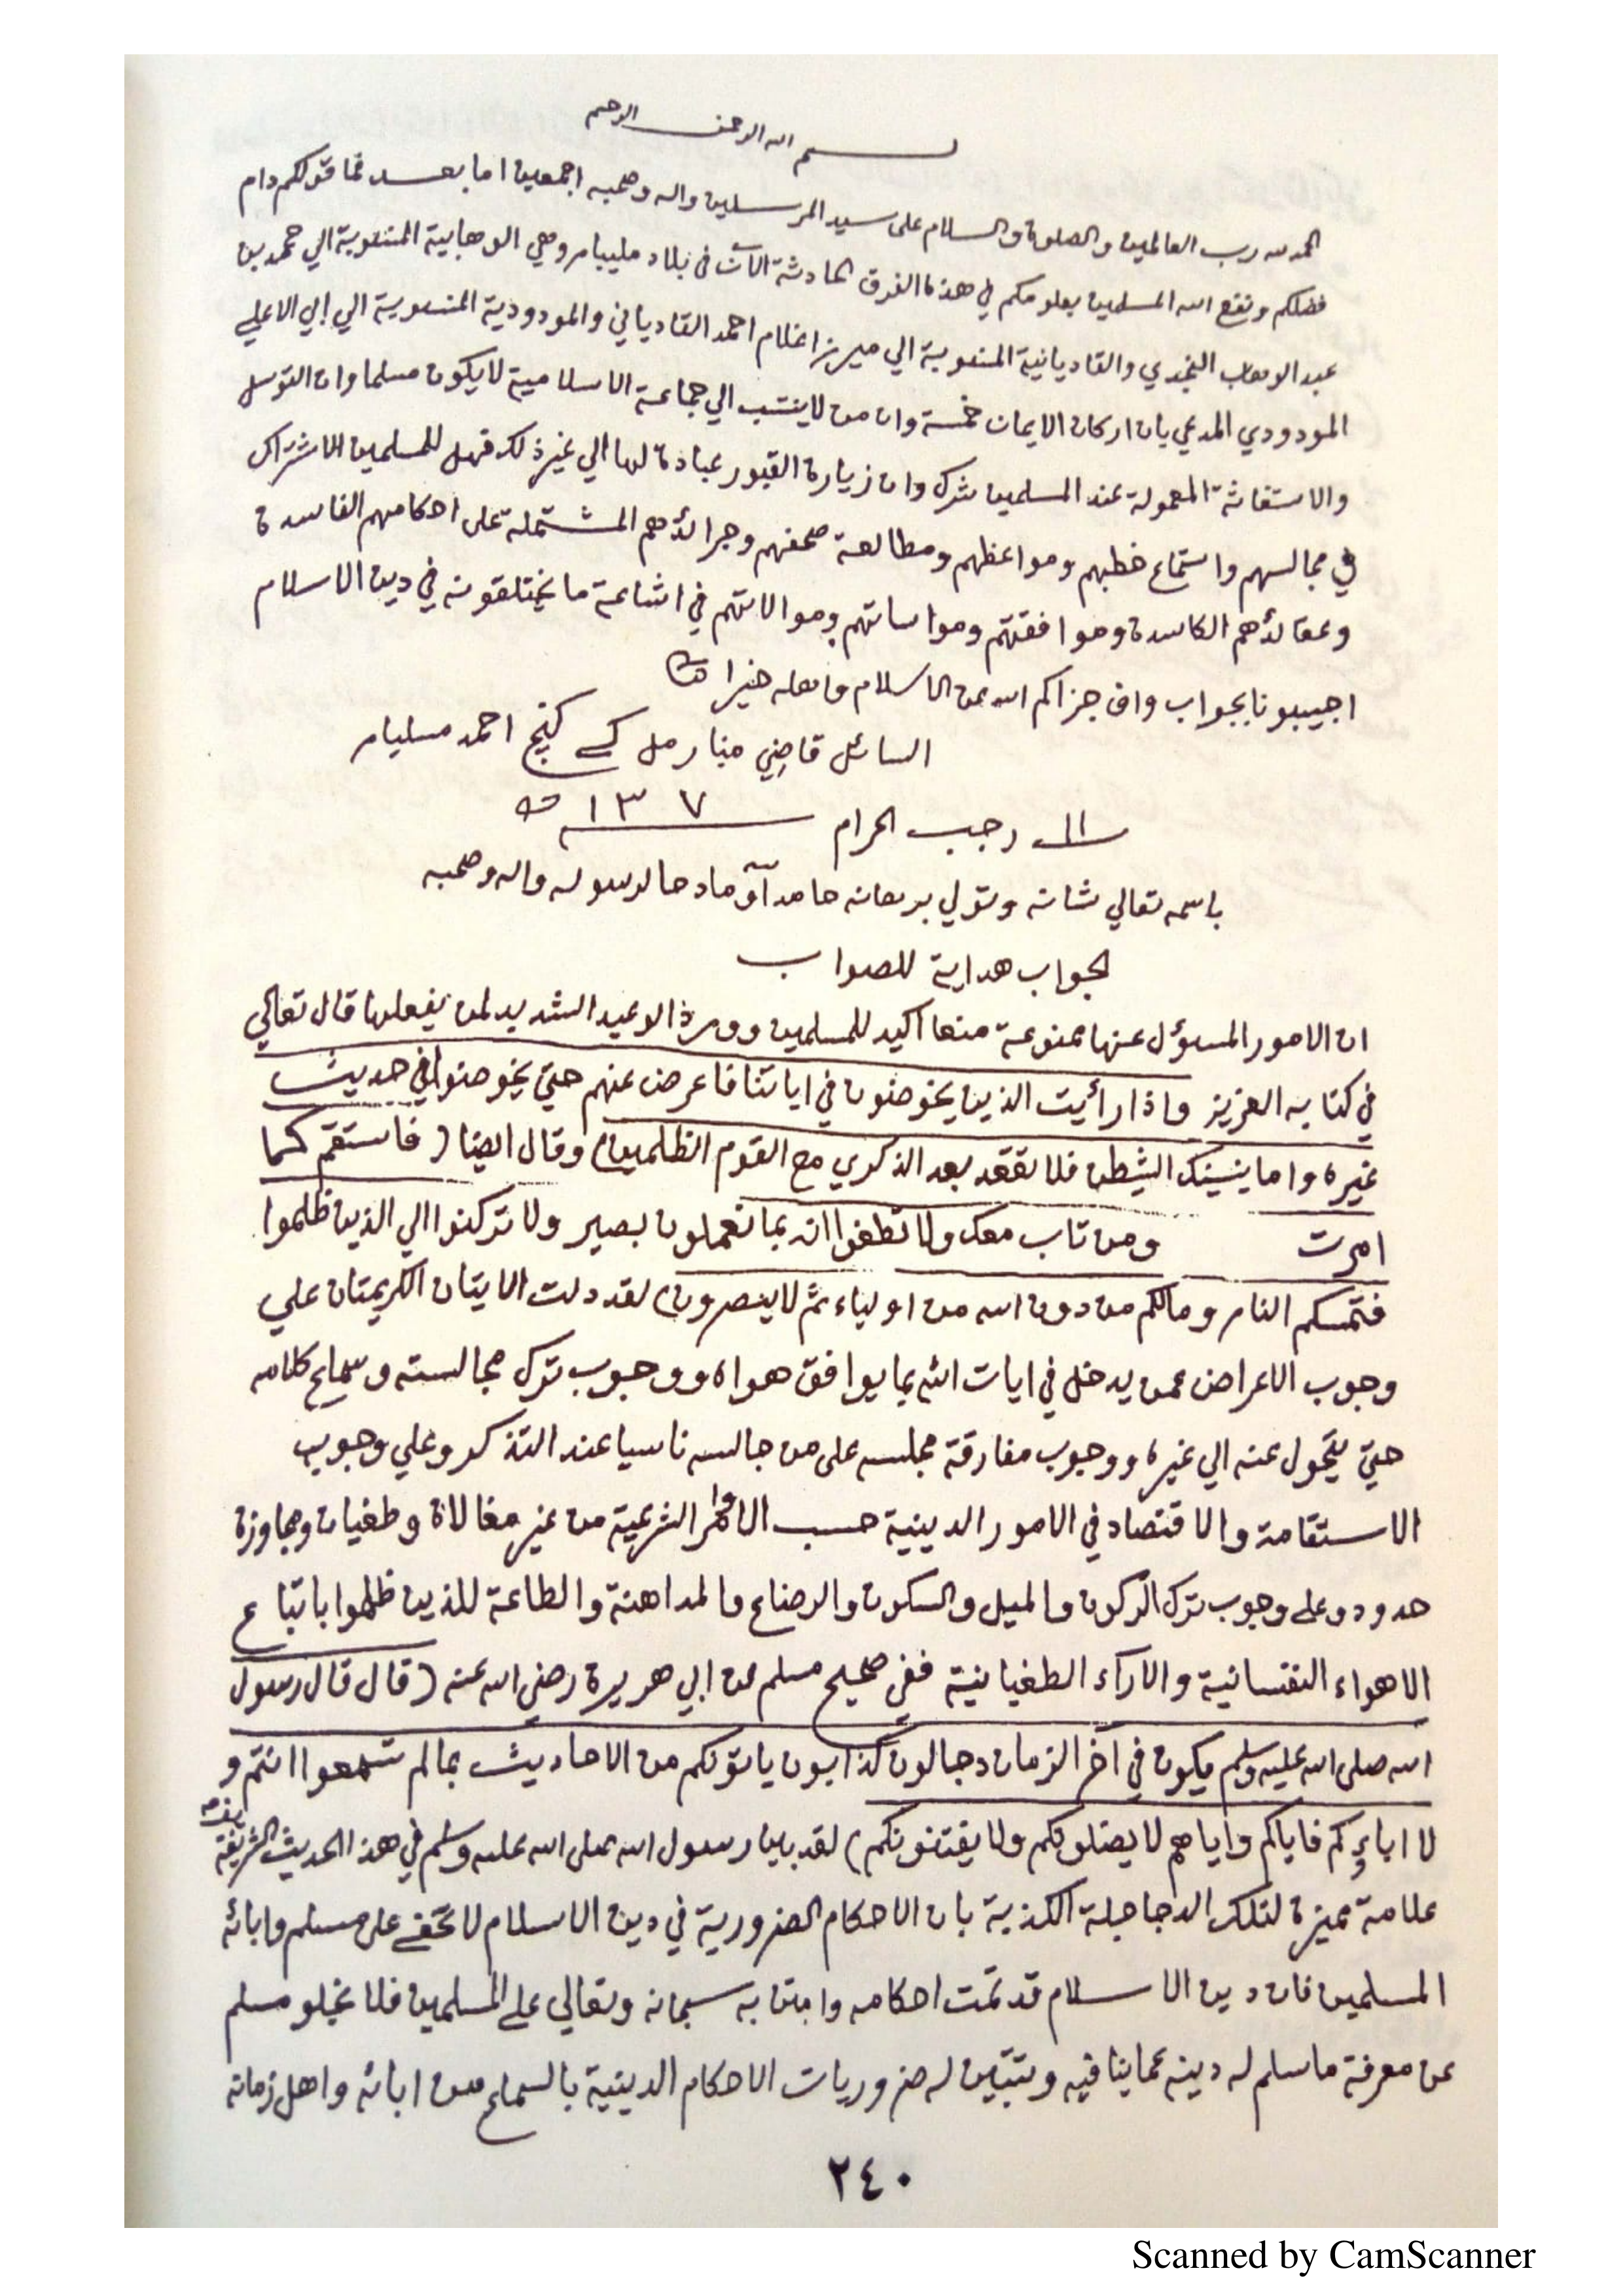 بسم الله الرحمن الرحيم
الحمد لله رب العالمين والصلوة والسلام على سيد المرسلين واله وصحبه اجمعين اما بعد فما قولكم دام
فضلكم ونفع الله المسلمين بعلومكم في هذه الفرق الحادثة الآن في بلاد مليبار وهي الوهابية المنسوبة الي محمد بن
عبد الوهاب النجدي والقاديانية المنسوبة الي ميرزا غلام احمد القادياني والمودودية المنسوبة الي ابي الاعلي
المودودي المدعي بان اركان الايمان خمسة وان من لا ينتسب الي جماعة الاسلامية لا يكون مسلما وان التوسل
والاستغاثة المعمولة عند المسلمين شرك وان زيارة القبور عبادة لها الي غير ذلك فهل للمسلمين الاشتراك
في مجالسهم واستماع خطبهم ومواعظهم ومطالعة صحفهم وجرائدهم المشتملة على احكامهم الفاسدة
وعقائدهم الكاسدة وموافقتهم ومواساتهم وموالاتهم في اشاعة ما يختلقونه في دين الاسلام
اجيبونا بجواب واف جزاكم الله عن الاسلام واهله خيرا
السائل قاضي منارمل كے كنج احمد مسليار
١١ رجب الحرام ١٣٧
باسمه تعالي شانه وتولي برهانه حامدآ و مادحا لرسوله واله وصحبه
الجواب هداية للصواب
ان الامور المسؤل عنها ممنوعة منعا اكيد للمسلمين وورد الوعيد الشديد لمن يفعلها قال تعالي
في كتابه العزيز واذا رأيت الذين يخوضون في اياتنا فاعرض عنهم حتي يخوضوا في حديث
غيره واما ينسينك الشيطن فلا تقعد بعد الذكري مع القوم الظلمين) وقال ايضا (فاستقم كما
امرت ومن تاب معك ولا تطغوا انه بما تعملون بصير ولا تركنوا الي الذين ظلموا
فتمسكم النار ومالكم من دون الله من اولياء ثم لا ينصرون) لقد دلت الايتان الكريمتان علي
وجوب الاعراض عمن يدخل في ايات الله بما يوافق هواه ووجوب ترك مجالسته وسماع كلامه
حتي يتحول عنه الي غيره ووجوب مفارقة مجلسه على من جالسه ناسيا عند التذكر وعلي وجوب
الاستقامة والاقتصاد في الامور الدينية حسب الاوامر الشرعية من غير مغالاة وطغيان ومجاوزة
حدود وعلى وجوب ترك الركون والميل والسكون والرضاع والمداهنة والطاعة للذين ظلموا باتباع
الاهواء النفسانية والاراء الطغيانية ففي صحيح مسلم عن ابي هريرة رضي الله عنه (قال قال رسول
الله صلى الله عليه وسلم يكون في آخر الزمان دجالون كذابون ياتونكم من الاحاديث بمالم تسمعوا انتم و
لا اباءكم فاياكم واياهم لا يضلونكم ولا يفتنونكم) لقد بين رسول الله صلى الله عليه وسلم في هذا الحديث الشريفة
علامة مميزة لتلك الدجاجلة الكذبة بان الاحكام الضرورية في دين الاسلام لا تخفى على مسلم وابائه
المسلمين فان دين الاسلام قد تمت احكامه وامتن به سبحانه وتعالي على المسلمين فلا يخلو مسلم
عن معرفة ما سلم له دينه عما ينافيه وتتبين له ضروريات الاحكام الدينية بالسماع من ابائه واهل زمانه
٢٤٠
Scanned by CamScanner